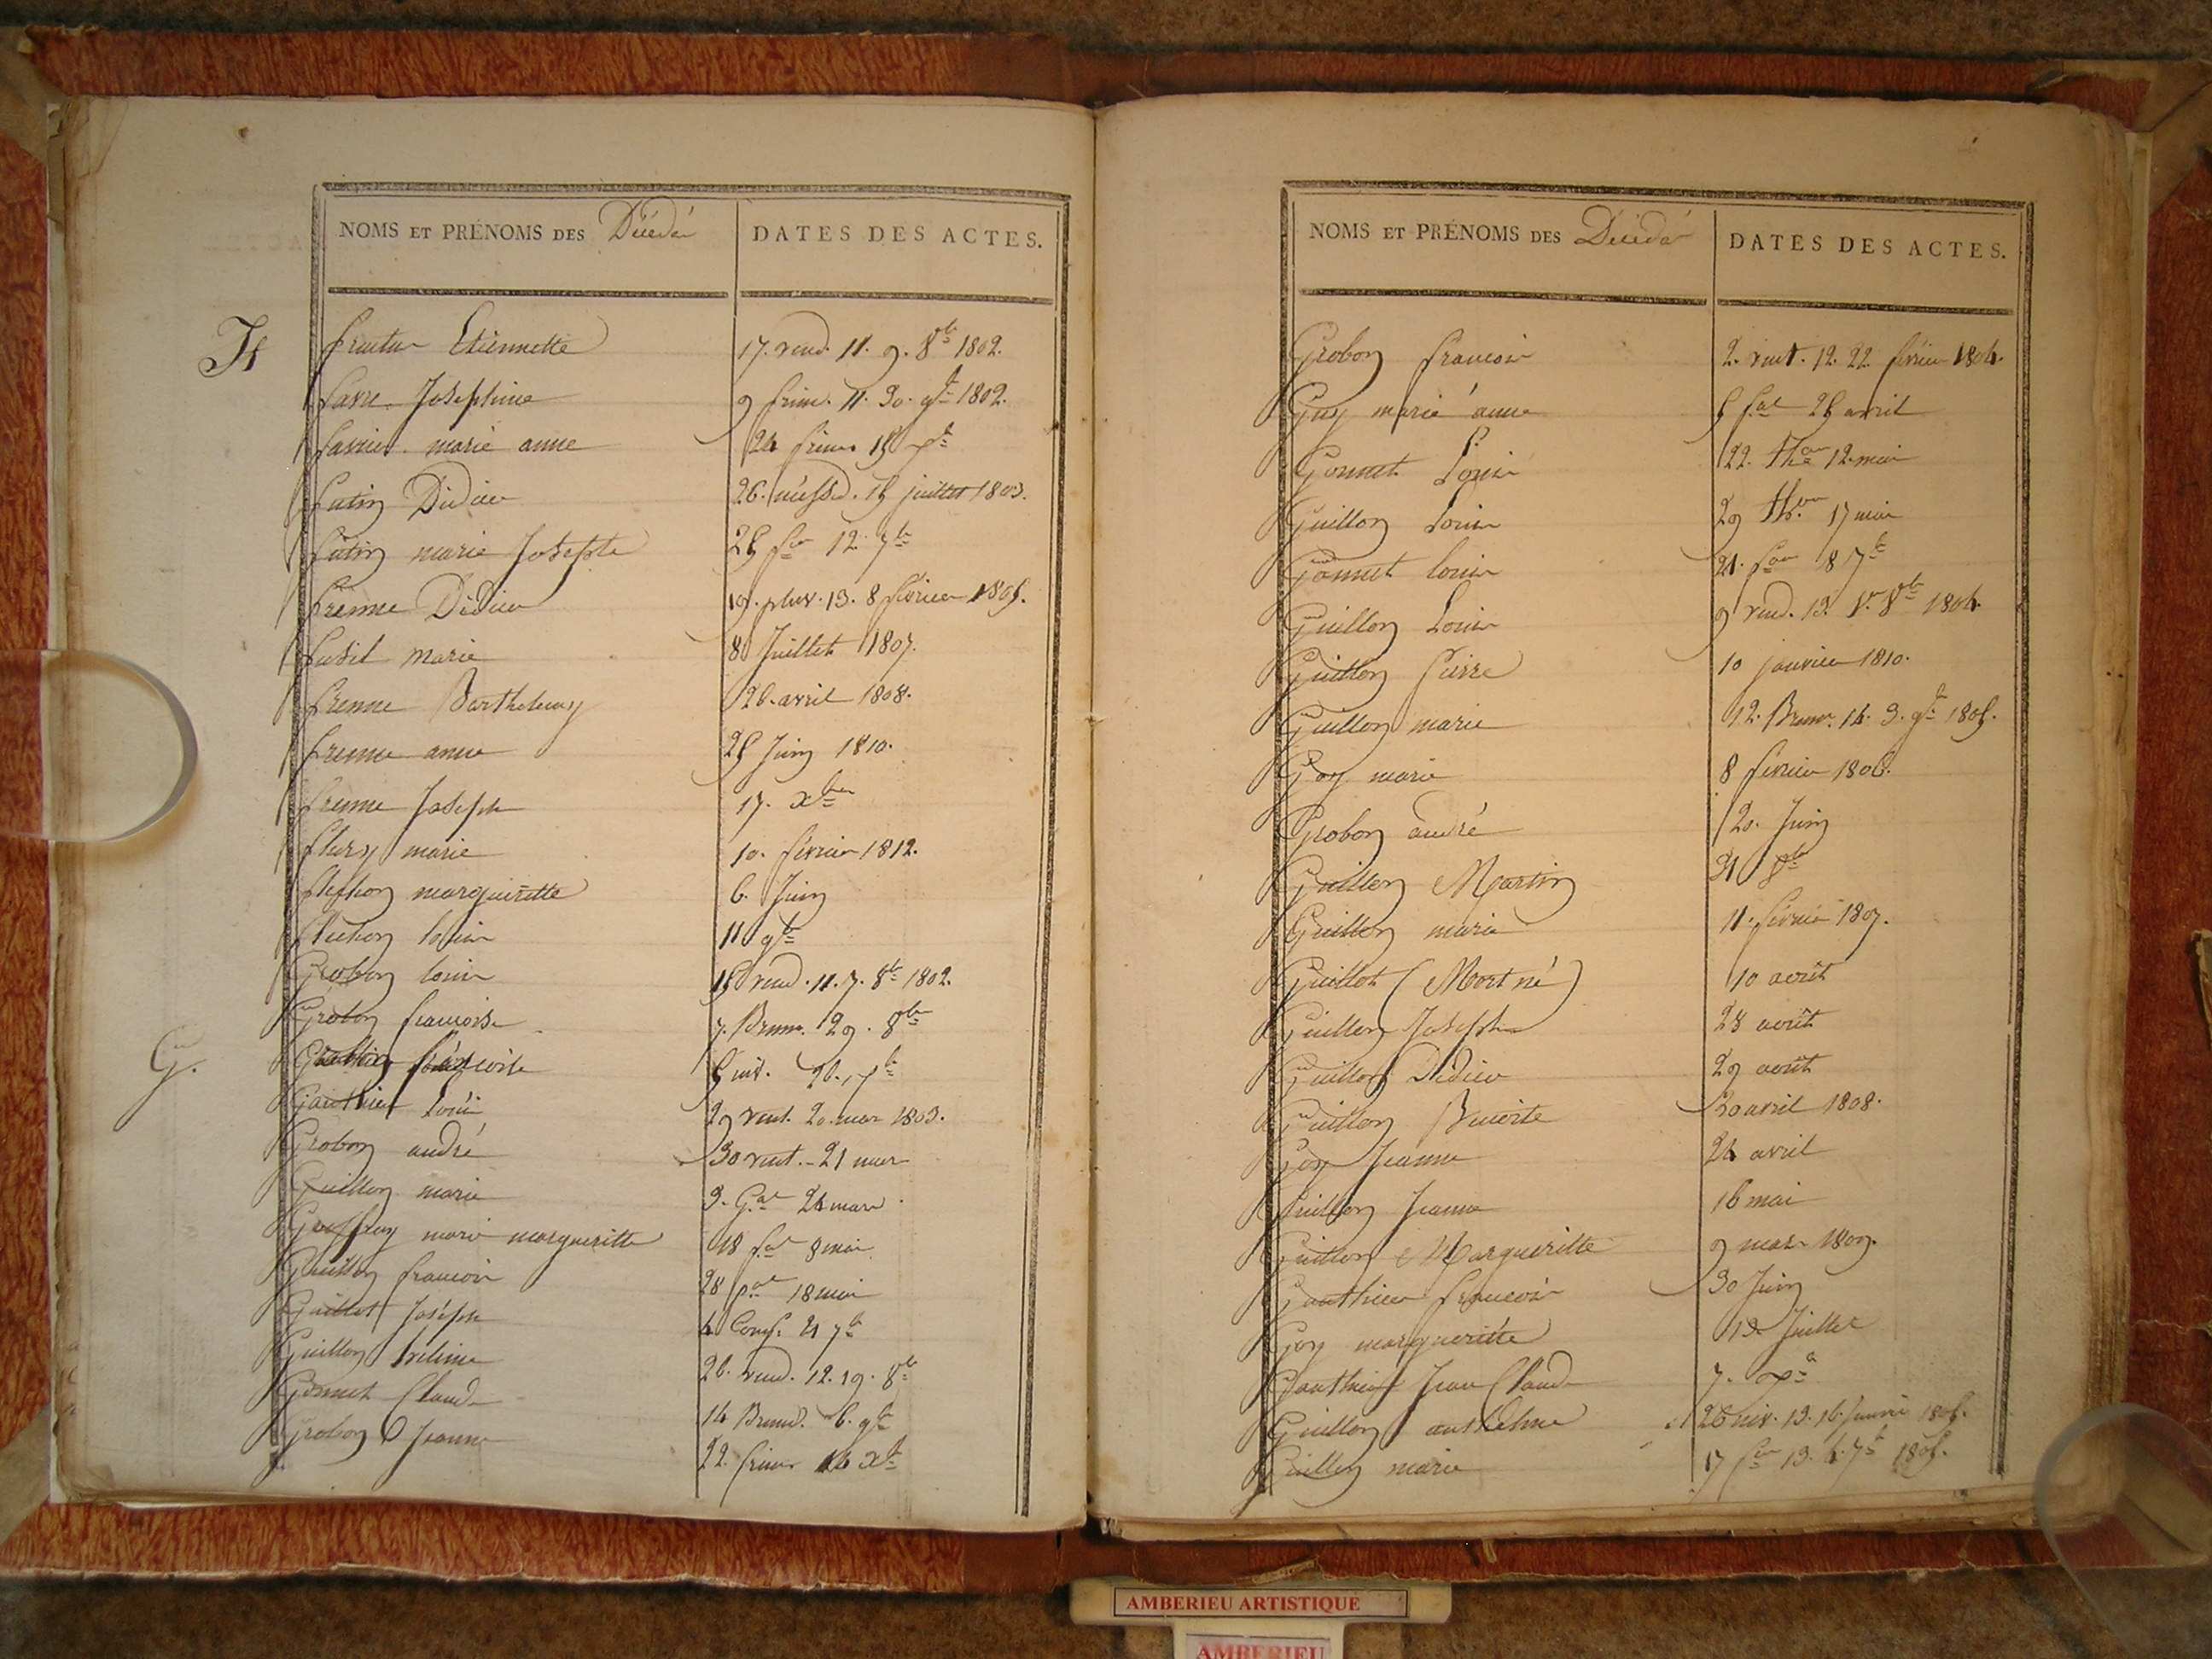 NOMS ET PRÉNOMS DES Décédés DATES DES ACTES.
F
Etiennette 17. vend. 11. 9. 8bre 1802.
Favre Josephine 9 frim. 11. 30. 9bre 1802.
marie anne 24 frim. 15 xbre
Futin Didier 26. messid. 15 juillet 1803.
Futin marie Josephte 25 for 12 7bre
Frenne Didier 19. pluv. 13. 8 février 1805.
Fusil marie 8 Juillet 1807.
Frenne Barthelemy 26. avril 1808.
Frenne anne 25 Juin 1810.
Frenne Joseph 17. Xbre
Flury marie 10. février 1812.
margueritte 6. Juin
louis 11 9bre
Grobon louis 15 vend. 11. 7. 8bre 1802.
G. Grobon francoise 7. Brum. 29. 8bre
francoise 5 niv. 26. xbre
Gauthier Louis 29 vent. 20. mars 1803.
Grobon andré 30 vent. 21 mars
Guillon marie 3. Gal 24 mars
Geoffray marie margueritte 18 fal 8 mai
Guillon francois 28 fal 18 mai
Guillot Joseph 4 Comp. 21 7bre
Guillon 26. vend. 12. 19. 8bre
Gonnet Claude 14 Brum. 6. 9bre
Grobon Jeanne 22. frim. 14 Xbre
NOMS ET PRÉNOMS DES Décédés DATES DES ACTES.
Grobon francois 2. vent. 12. 22 février 1804.
Guy marie anne 5 fal 25 avril
Gonnet Louis 22. 12. mai
Guillon Louis 29 17 mai
Gonnet louis 21. for 8 7bre
Guillon Louis 9 vend. 13. 1er 8bre 1804.
Guillon Pierre 10 janvier 1810.
Guillon marie 12. Brum. 14. 3. 9bre 1805.
Goy marie 8 février 1806.
Grobon andré 20. Juin
Guillon Martin 31 8bre
Guillon marie 11. février 1807.
Guillot (Mort né) 10 août
Guillon Joseph 28 août
Guillon Didier 29 août
Guillon Benoite 20 avril 1808.
Goy Jeanne 24 avril
Guillon Jeanne 16 mai
Guillon Margueritte 9 mars 1809.
Gauthier francois 30 Juin
Goy margueritte 13 Juillet
Gauthier Jean Claude 7. xbre
Guillon anthelme 26 niv. 13. 16. Janvier 1805.
Guillon marie 17 for 13. 4. 7bre 1805.
AMBERIEU ARTISTIQUE
AMBERIEU